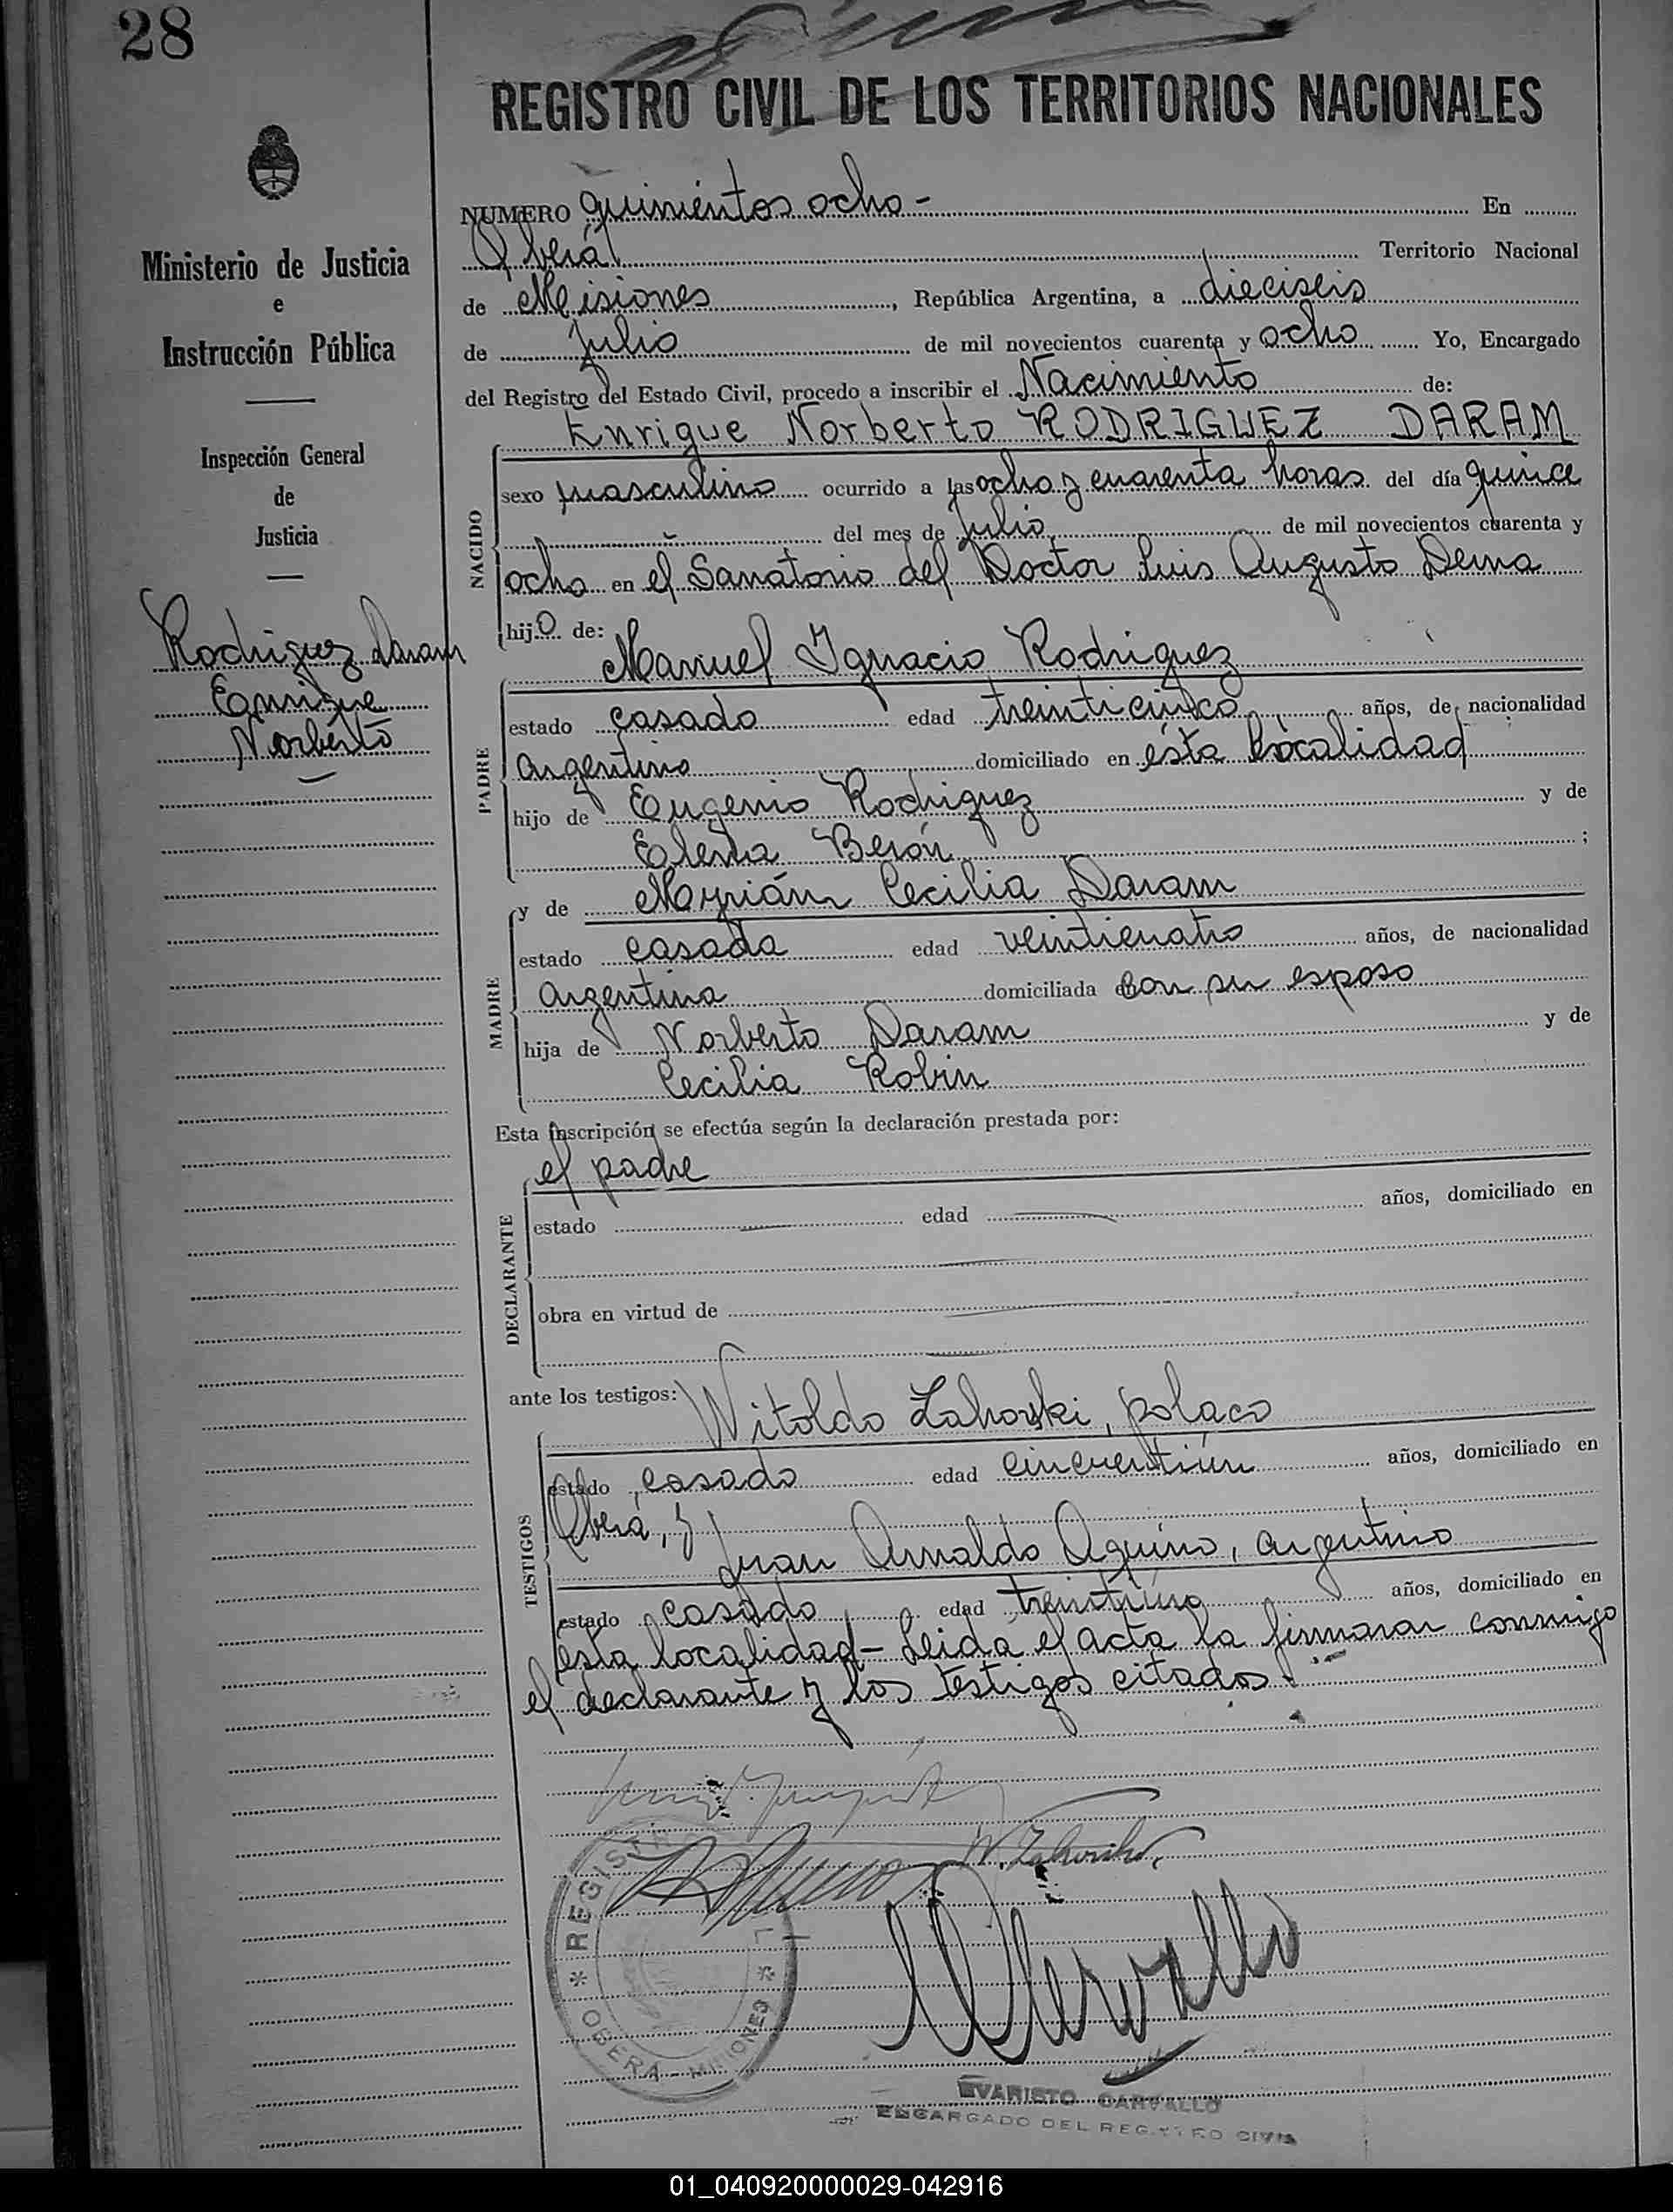 28
REGISTRO CIVIL DE LOS TERRITORIOS NACIONALES
Ministerio de Justicia
e
Instrucción Pública
Inspección General
de
Justicia
Rodriguez Daram
Enrique
Norberto
NUMERO quinientos ocho - En
Oberá Territorio Nacional
de Misiones, República Argentina, a dieciseis
de Julio de mil novecientos cuarenta y ocho Yo, Encargado
del Registro del Estado Civil, procedo a inscribir el Nacimiento de:
Enrique Norberto RODRIGUEZ DARAM
NACIDO
sexo masculino ocurrido a las ocho y cuarenta horas del día quince
del mes de Julio de mil novecientos cuarenta y
ocho en el Sanatorio del Doctor Luis Augusto Derna
hijo de:
Manuel Ignacio Rodriguez
PADRE
estado casado edad treinticinco años, de nacionalidad
argentino domiciliado en ésta localidad
hijo de Eugenio Rodriguez y de
Elena Berón ;
MADRE
y de Myrián Cecilia Daram
estado casada edad veinticuatro años, de nacionalidad
argentina domiciliada con su esposo
hija de Norberto Daram y de
Cecilia Robin
Esta inscripción se efectúa según la declaración prestada por:
el padre
DECLARANTE
estado edad años, domiciliado en
obra en virtud de
ante los testigos: Witoldo Zahorski, polaco
TESTIGOS
estado casado edad cincuentiún años, domiciliado en
Oberá, y
Juan Arnaldo Aquino, argentino
estado casado edad treintiuno años, domiciliado en
ésta localidad - Leida el acta la firmaron conmigo
el declarante y los testigos citados.-
W. Zahorski
REGISTRO
* OBERA - MISIONES *
EVARISTO CARVALLO
ENCARGADO DEL REGISTRO CIVIL
01_040920000029-042916